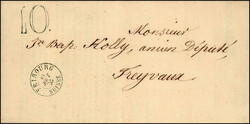 10.
Monsieur
Jn Bap. Kolly, ancien Député,
Treyvaux
FRIBOURG SUISSE